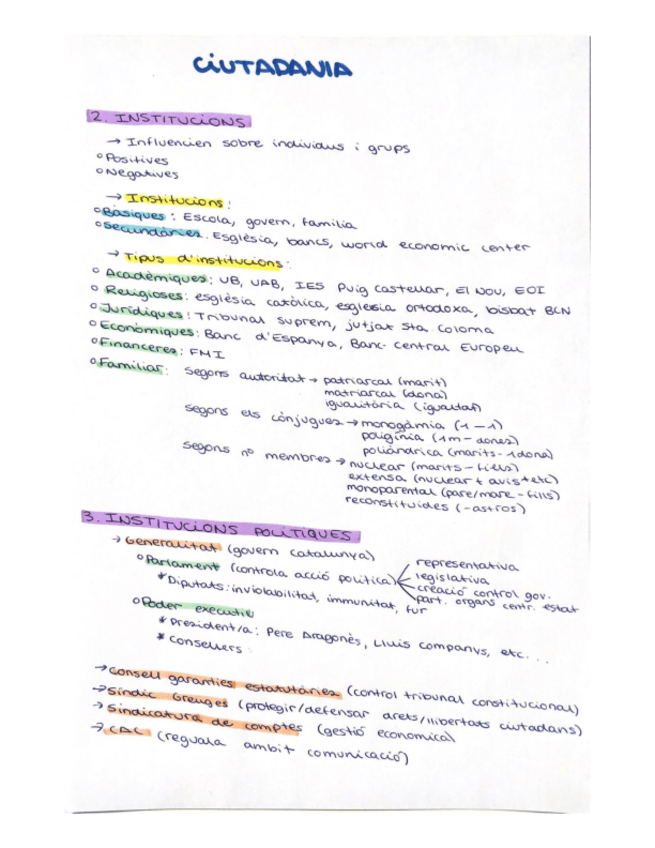 CiUTADANIA
2. INSTITUCIONS
→ Influencien sobre individus i grups
○ Positives
○ Negatives
→ Institucions:
○ Bàsiques: Escola, govern, família
○ Secundàries. Església, bancs, world economic center
→ Tipus d'institucions:
○ Acadèmiques: UB, UAB, IES Puig Castellar, El Nou, EOI
○ Religioses: església catòlica, església ortodoxa, bisbat BCN
○ Jurídiques: Tribunal suprem, jutjat Sta Coloma
○ Econòmiques: Banc d'Espanya, Banc central Europeu
○ Financeres: FMI
○ Familiar: Segons autoritat → patriarcal (marit)
matriarcal (dona)
igualitària (igualtat)
segons els cònjugues → monogàmia (1 - 1)
poligínia (1m - dones)
poliàndrica (marits - 1dona)
segons nº membres → nuclear (marits - fills)
extensa (nuclear + avis + etc)
monoparental (pare/mare - fills)
reconstituïdes (-astros)
3. INSTITUCIONS POLÍTIQUES
→ Generalitat (govern catalunya)
○ Parlament (controla acció política)
representativa
legislativa
creació control gov.
part. organs centr. estat
* Diputats: inviolabilitat, immunitat, fur
○ Poder executiu
* President/a: Pere Aragonès, Lluis companys, etc...
* Consellers:
→ Consell garanties estatutàries (control tribunal constitucional)
→ Síndic Greuges (protegir/defensar drets/llibertats ciutadans)
→ Sindicatura de comptes (gestió econòmica)
→ CAC (reguala àmbit comunicació)